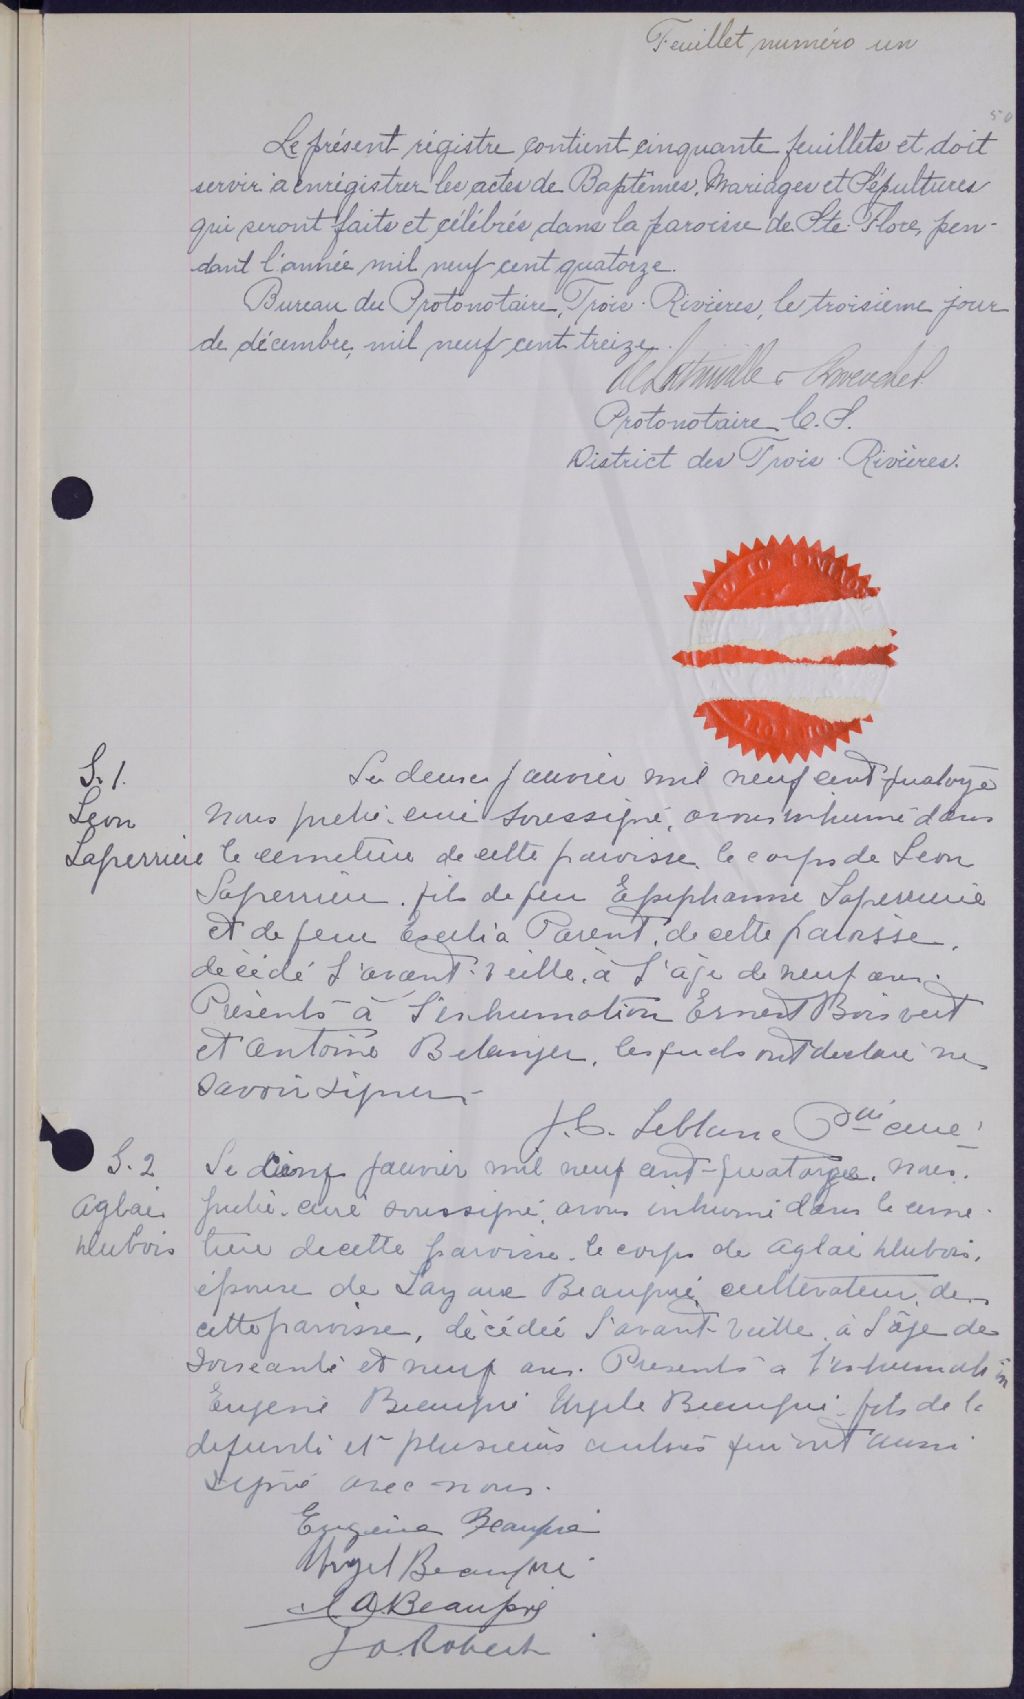 Feuillet numéro un
50
Le présent régistre contient cinquante feuillets et doit
servir à enrégistrer les actes de Baptêmes, Mariages et Sépultures
qui seront faits et célébrés dans la paroisse de Ste. Flore, pen-
dant l'année mil neuf cent quatorze.
Bureau du Protonotaire, Trois-Rivières, le troisième jour
de décembre, mil neuf cent treize.
Protonotaire C. S.
District des Trois-Rivières.
S. 1.
Leon
Laperriere
Le deux janvier mil neuf cent quatorze
nous prêtre-curé soussigné, avons inhumé dans
le cemetière de cette paroisse le corps de Leon
Laperriere, fils de feu Epiphanie Laperriere
et de feue Exelia Parent, de cette paroisse,
décédé l'avant-veille, à l'âge de neuf ans.
Présents à l'inhumation Ernest Boisvert
et Antoine Belanger, lesquels ont déclaré ne
savoir signer.
J. C. Leblanc Ptre curé
S. 2
Aglaé
Dubois
Le cinq janvier mil neuf cent-quatorze, nous,
prêtre-curé soussigné, avons inhumé dans le ceme-
tière de cette paroisse le corps de Aglaé Dubois,
épouse de Lazare Beaupré cultivateur de
cette paroisse, décédée l'avant-veille à l'âge de
soixante et neuf ans. Presents a l'inhumation
Eugène Beaupré Urgele Beaupré fils de la
defunte et plusieurs autres qui ont aussi
signé avec nous.
Eugène Beaupré
Urgel Beaupré
A. Beaupré
J. O. Robert